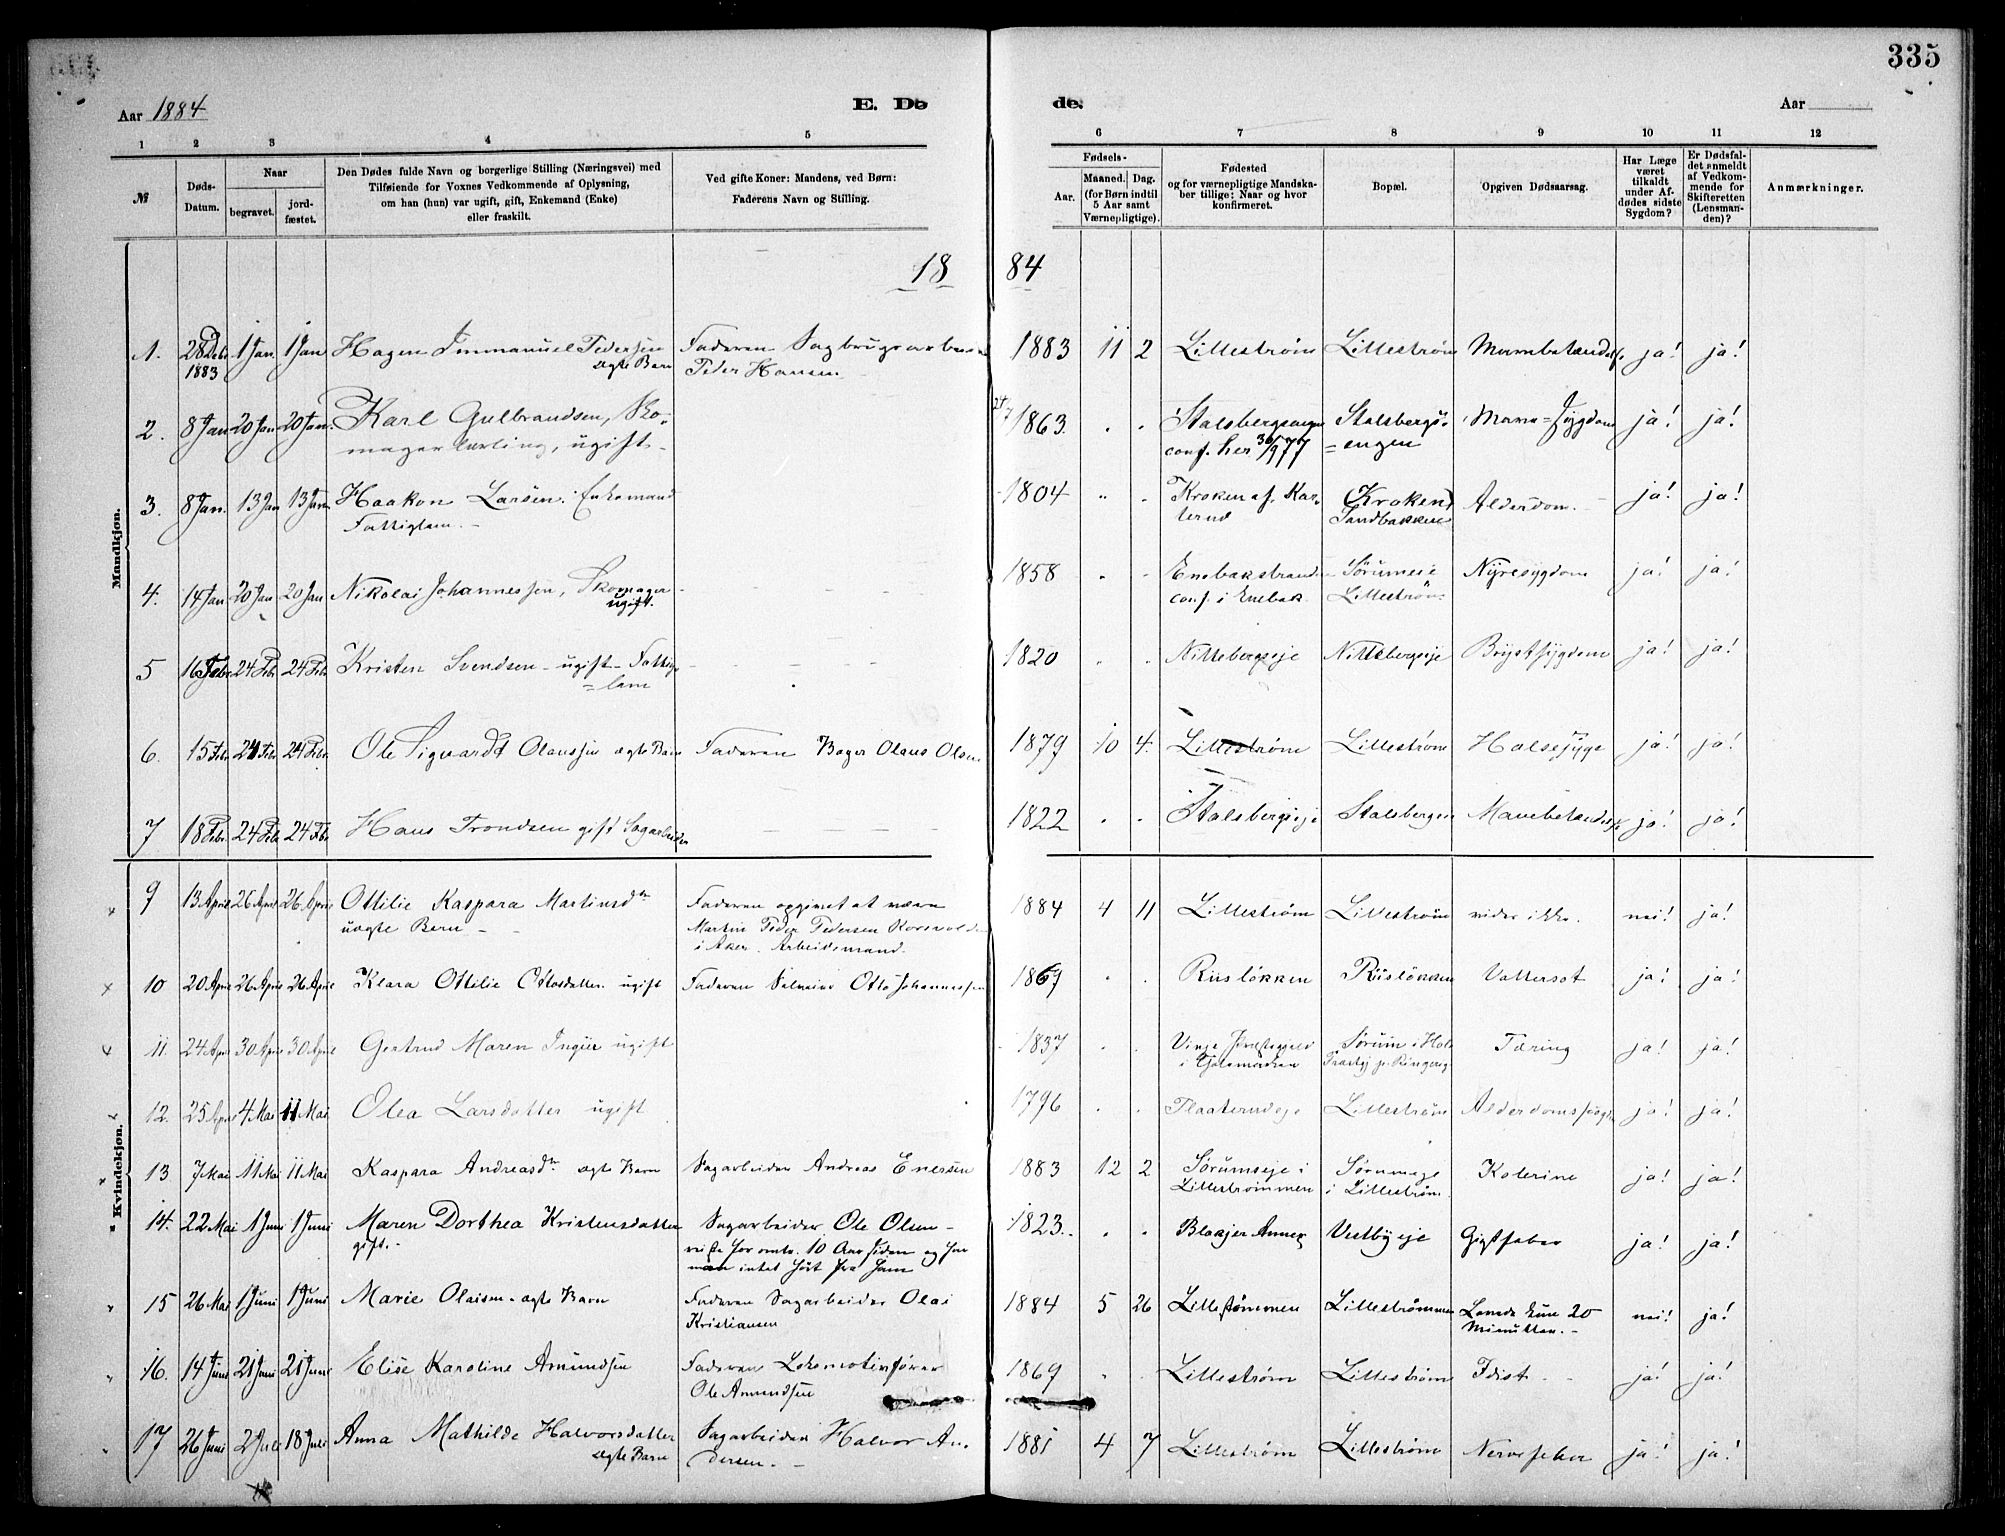 335
Aar 1884
E. Dø
de.
Aar
1 2 3 4 5 6 7 8 9 10 11 12
№
Døds-
Datum.
Naar
begravet.
jord-
fæstet.
Den Dødes fulde Navn og borgerlige Stilling (Næringsvei) med
Tilføiende for Voxnes Vedkommende af Oplysning,
om han (hun) var ugift, gift, Enkemand (Enke)
eller fraskilt.
Ved gifte Koner: Mandens, ved Børn:
Faderens Navn og Stilling.
Fødsels-
Aar.
Maaned. Dag.
(for Børn indtil
5 Aar samt
Værnepligtige).
Fødested
og for værnepligtige Mandska-
ber tillige: Naar og hvor
konfirmeret.
Bopæl.
Opgiven Dødsaarsag.
Har Læge
været
tilkaldt
under Af-
dødes sidste
Sygdom?
Er Dødsfal-
det anmeldt
af Vedkom-
mende for
Skifteretten
(Lensman-
den)?
Anmærkninger.
18 84
Mandkjøn.
1. 28 Debr 1 Jan. 1 Jan Hagen Immanuel Pedersen Faderen Sagbrugsarbeider 1883 11 2 Lillestrøm Lillestrøm ja! ja!
1883 ægte Barn Peder Hansen
2. 8 Jan 20 Jan 20 Jan. Karl Gulbrandsen, Sko- 1863. Stalsbergengen Stalsbergs- Mave-Sygdom ja! ja!
magerlærling, ugift conf. her 30/9 77 =engen
3. 8 Jan. 13 Jan 13 Jan. Haakon Larsen. Enkemand 1804 Kroken af Kar- (Kroken) Alderdom. ja! ja!
Fattiglem. terud Sandbakken
4. 14 Jan 20 Jan 20 Jan Nikolai Johannessen, Skomager 1858 Enebakstrand Sørumeie Nyresygdom ja! ja!
ugift. conf. i Enebak. Lillestrøm
5 16 Febr 24 Febr 24 Febr Kristen Svendsen ugift Fattig- 1820 Nittebergseje Nittebergseje Brystsygdom ja! ja!
=lem
6. 15 Febr 24 Febr 24 Febr. Ole Sigvardt Olaussen ægte Barn Faderen Bager Olaus Olsen 1879 10 4. Lillestrøm Lillestrøm Halssyge ja! ja!
7 18 Febr. 24 Febr 24 Febr Hans Trondsen gift Sagarbeider 1822 Stalsbergseje Stalsbergeje Mavebetændelse ja! ja!
Kvindekjøn.
9 13 April 26 April 26 April Ottilie Kaspara Martinsdtr Faderen opgivet at være 1884 4 11 Lillestrøm Lillestrøm vides ikke. nei! ja!
uægte Barn Martin Peder Pedersen
i Aker. Arbeidsmand.
10 20 April 26 April 26 April Klara Ottilie Ottosdatter ugift Faderen Otto Johannessen 1869 Riisløkken Riisløkken Vattersot ja! ja!
11. 24 April 30 April 30 April Gertrud Maren Ingier ugift 1837 Vinje Præstegjeld Sørum i Hole Tæring ja! ja!
i Thelemarken Præstgj p. Ringerig
12. 25 April 4 Mai 11 Mai Olea Larsdatter ugift 1796 Plaaterudeje Lillestrøm ja! ja!
13 7 Mai 11 Mai 11 Mai Kaspara Andreasdtr ægte Barn Sagarbeider Andreas Enersen 1883 12 2 Sørumseje i Sørumseje Kolerine ja! ja!
Lillestrømmen i Lillestrøm.
14. 22 Mai 1 Juni 1 Juni Maren Dorthea Kristensdatter Sagarbeider Ole Olsen 1823. Blakjer Annex Vestbyeje Gigtfeber ja! ja!
gift. reiste for omtr. 10 Aar siden og har
man intet hørt fra ham
15 26 Mai 1 Juni 1 Juni Marie Olaisen ægte Barn Faderen Sagarbeider Olai 1884 5 26 Lillestrømmen Lillestrømmen Levede kun 20 nei! ja!
Kristiansen Minutter.
16. 14 Juni 21 Juni 21 Juni Elise Karoline Amundsen Faderen Lokomotivfører 1869 Lillestrøm Lillestrøm ja! ja!
Ole Amundsen
17 26 Juni 2 Juli 18 Juli Anna Mathilde Halvorsdatter Sagarbeider Halvor An- 1881 4 7 Lillestrøm Lillestrøm Nervefeber ja! ja!
ægte Barn dersen.